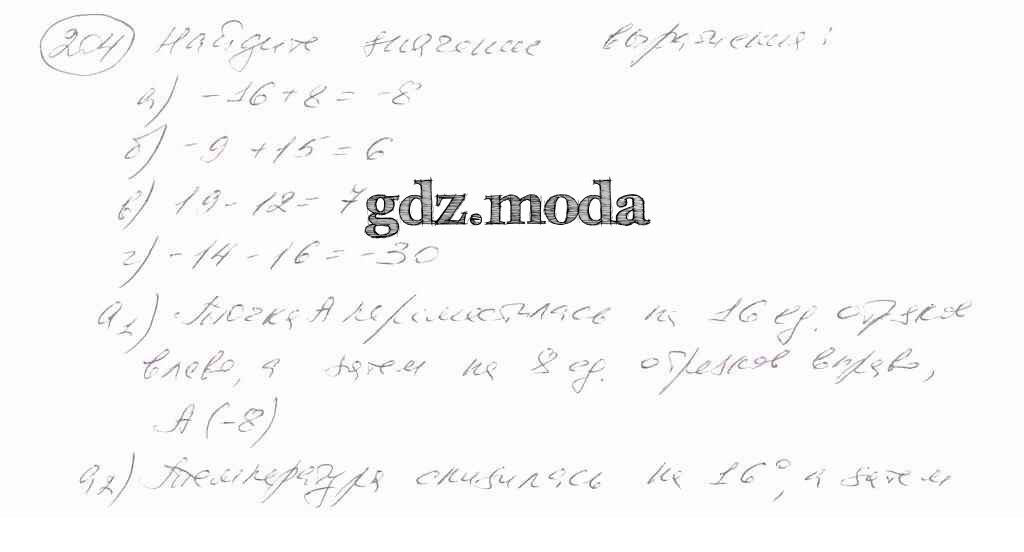 204 Найдите значение выражения:
а) -16+8=-8
б) -9+15=6
в) 19-12=7
gdz.moda
г) -14-16=-30
а1) Точка А переместилась на 16 ед. отрезков
влево, а затем на 8 ед. отрезков вправо,
А(-8)
а2) Температура снизилась на 16°, а затем